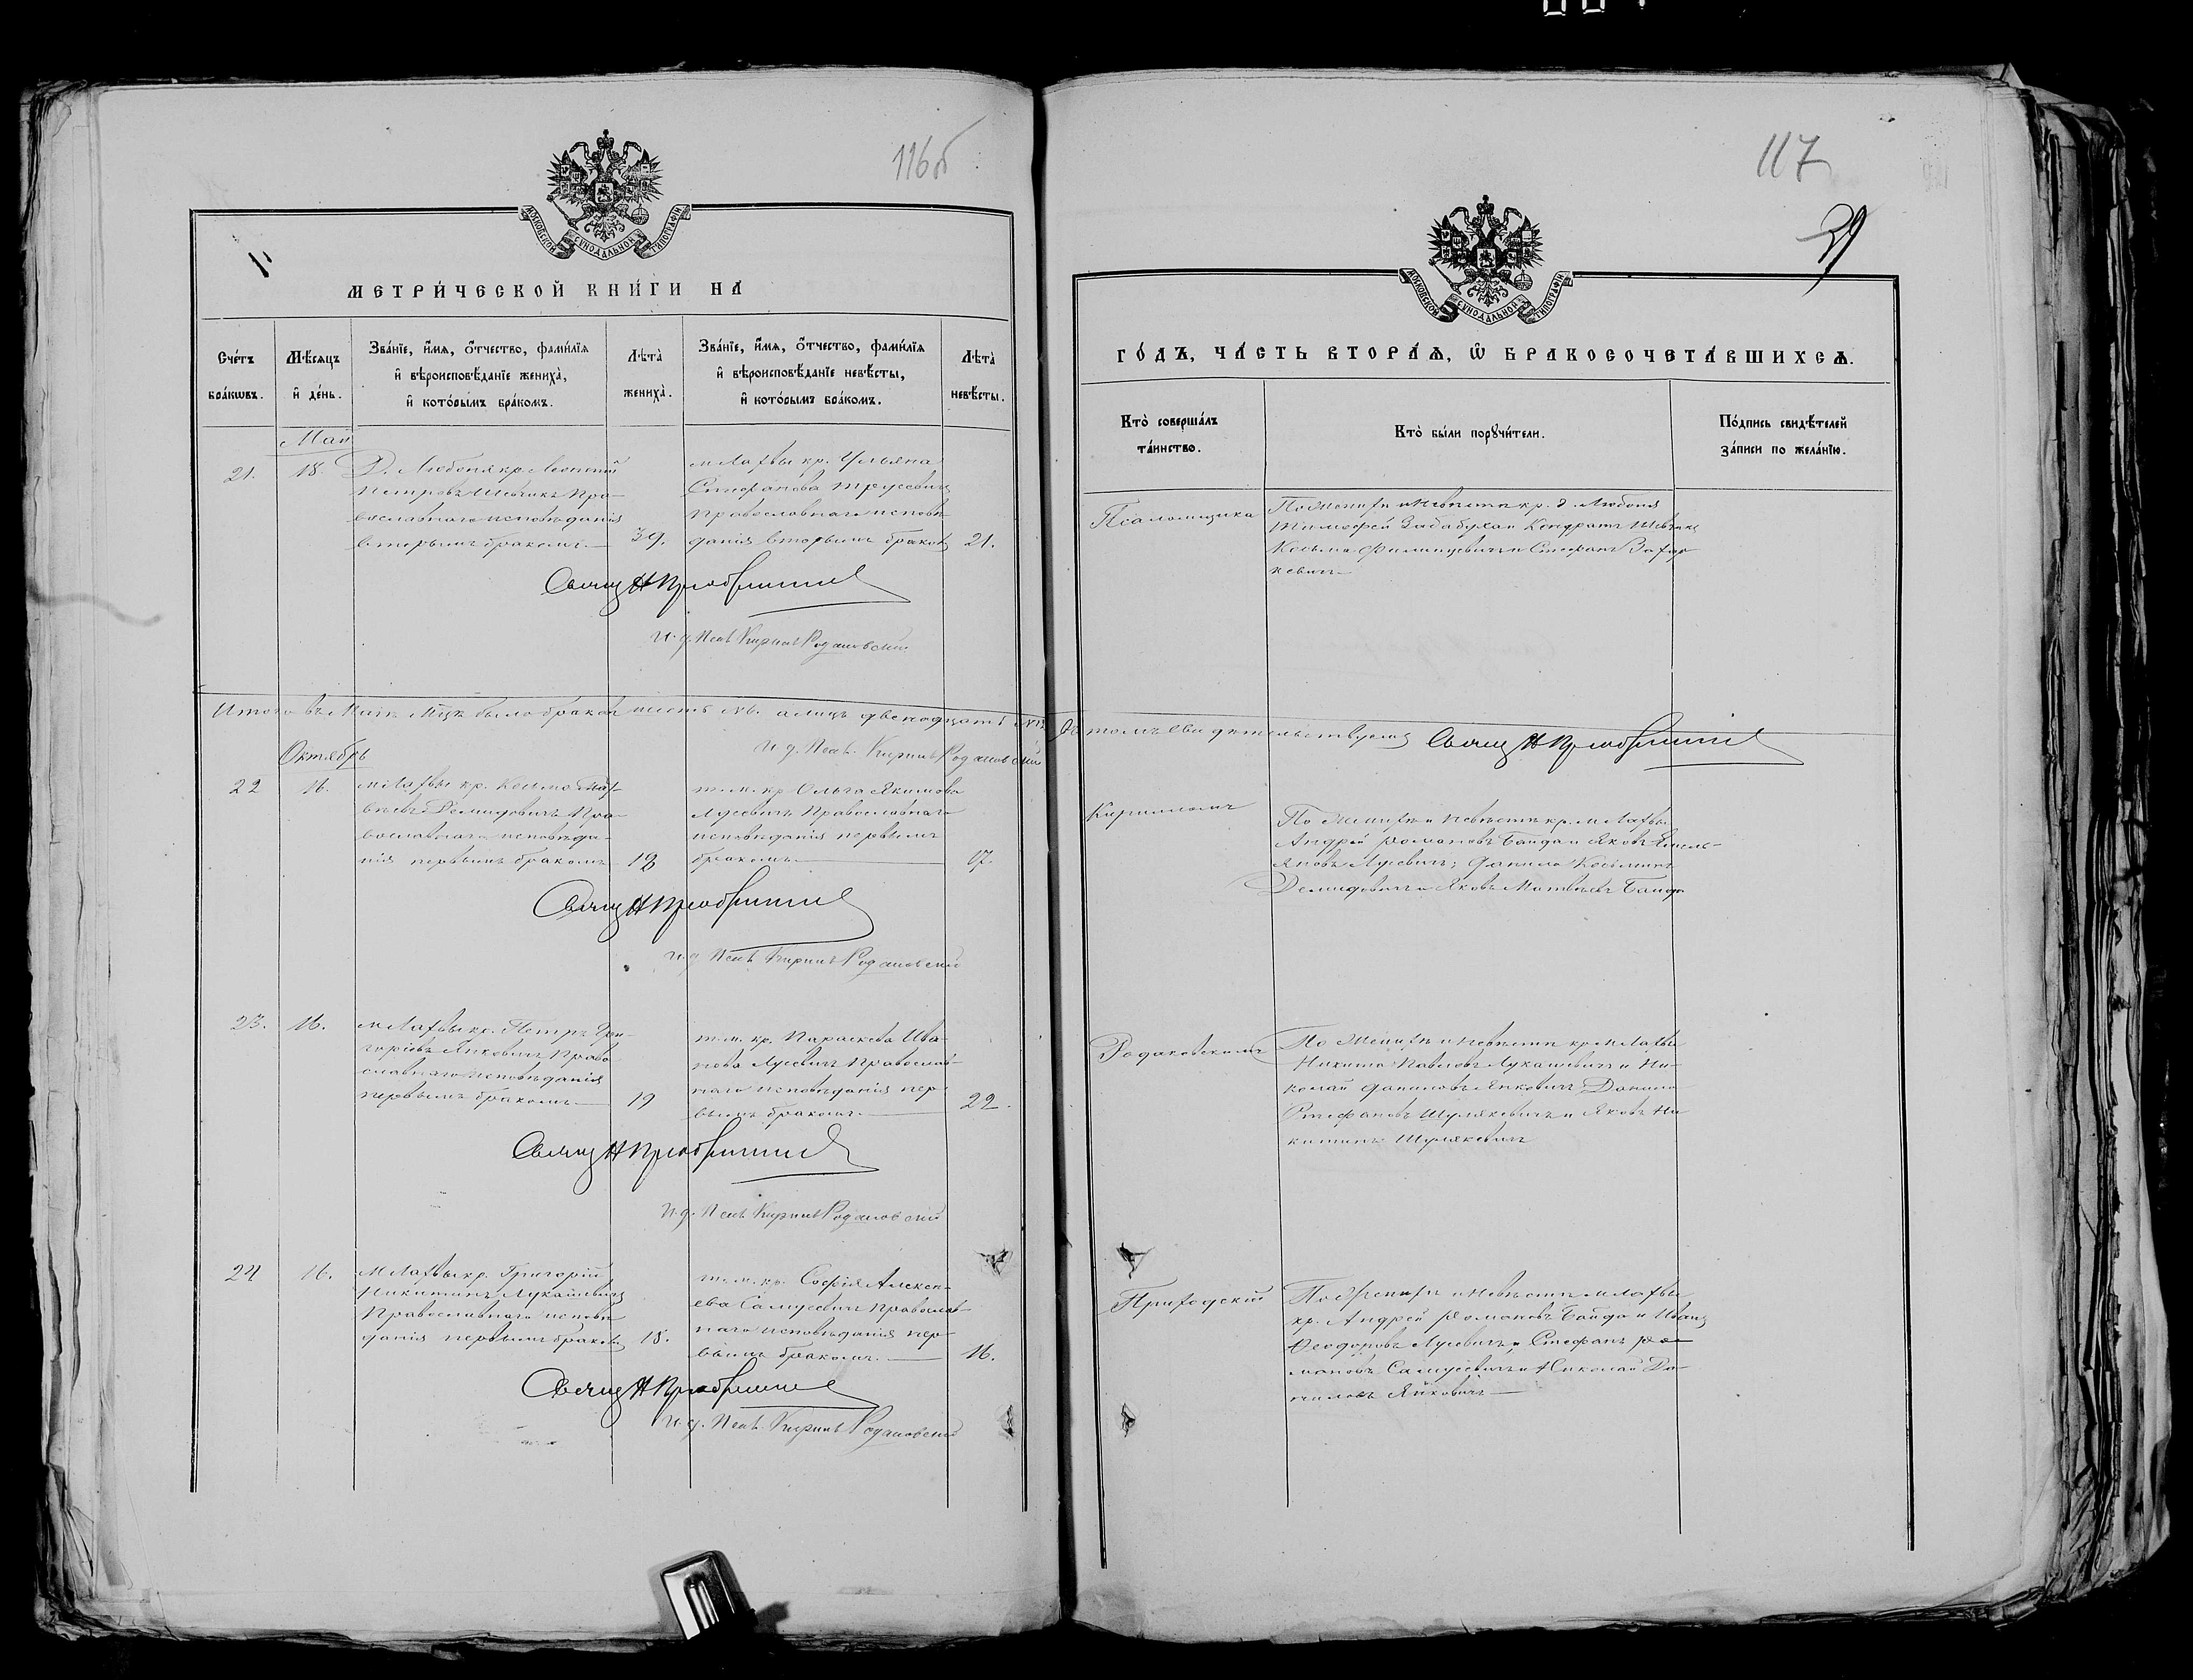 116б
МОСКОВСКОЙ СУНОДАЛЬНОЙ ТИПОГРАФІИ
МЕТРИ́ЧЕСКОЙ КНИ́ГИ НА̀
Сче́тъ бра́кωвъ.
Мѣ́сяцъ и҆ де́нь.
Зва́нїе, и҆́мя, ѻ҆́тчество, фами́лїя
и҆ вѣроисповѣ́данїе жениха̀,
и҆ кото́рымъ бра́комъ.
Лѣта̀ жениха̀.
Зва́нїе, и҆́мя, ѻ҆́тчество, фами́лїя
и҆ вѣроисповѣ́данїе невѣ́сты,
и҆ кото́рымъ бра́комъ.
Лѣта̀ невѣ́сты.
Май
21.
18.
Д. Любоня кр.
Петровъ Шевчикъ Пра-
вославнаго исповѣданія
вторымъ бракомъ
39.
м Лахвы кр. Ульяна
Стефанова
Православнаго исповѣ
данія вторымъ браком
21.
Свящ Н
И. д. Псал Кириллъ Родаковскій
Итого въ Маѣ М‑цѣ было браков шесть №6. а лицъ двенадцать №12
И д. Псал. Кириллъ Родаковскій
Октябрь
22
16.
м Лахвы кр. Косма Мат-
вѣевъ Демидовичъ Пра-
вославнаго исповѣда-
нія первымъ бракомъ
18
т.м. кр Ольга Якимова
Лусевичъ Православнаго
исповѣданія первымъ
бракомъ
17.
Свящ Н
И д Псал Кириллъ Родаковскій
23.
16.
м Лахвы кр. Петръ Гри-
горіевъ Янковичъ Право
славнаго исповѣданія
первымъ бракомъ
19
т.м. кр. Параскева Ива-
нова Лусевичъ Православ-
наго исповѣданія пер-
вымъ бракомъ
22.
Свящ Н
И. д. Псал Кириллъ Родаковскій
24
16.
м Лахвы кр. Григорій
Никитинъ Лукашевичъ
Православнаго исповѣ
данія первымъ браком
18.
т.м. кр. Софія Алексѣ-
ева Самусевичъ Православ-
наго исповѣданія пер-
вымъ бракомъ.
16.
Свящ Н
И. д. Псал. Кириллъ Родаковскій
117
МОСКОВСКОЙ СУНОДАЛЬНОЙ ТИПОГРАФІИ
ГО́ДЪ, ЧА́СТЬ ВТОРА́Я, Ѽ БРАКОСОЧЕТА́ВШИХСЯ.
Кто̀ соверша́лъ
та́инство.
Кто̀ бы́ли порꙋчи́тели.
По́дпись свидѣ́телей
за́писи по жела́нїю.
Псаломщика
По Женихѣ и Невѣстѣ кр. д Любоня
Тимофей Забабуха и Кондратъ Шевчикъ
Косьма Филипцевичъ и Стефанъ Захар
кевичъ
въ томъ свидѣтельствуемъ Свящ Н
Кирилломъ
По Женихѣ и Невѣстѣ кр. м Лахвы
Андрей Романовъ Байда и Яковъ Емель-
яновъ Лусевичъ; Данило Косьминъ
Демидовичъ и Яковъ Матвѣевъ Байда
Родаковскимъ
По Женихѣ и Невѣстѣ кр м Лахвы
Никита Павловъ Лукашевичъ и Ни-
колай Даниловъ Янковичъ Данило
Стефановъ Шулякевичъ и Яковъ Ни
китинъ Шулякевичъ
Приходскій
По Женихѣ и Невѣстѣ м Лахвы
кр. Андрей Романовъ Байда и Иванъ
Феодоровъ Лусевичъ, Стефанъ Ро
мановъ Самусевичъ и Николай Да-
ниловъ Янковичъ